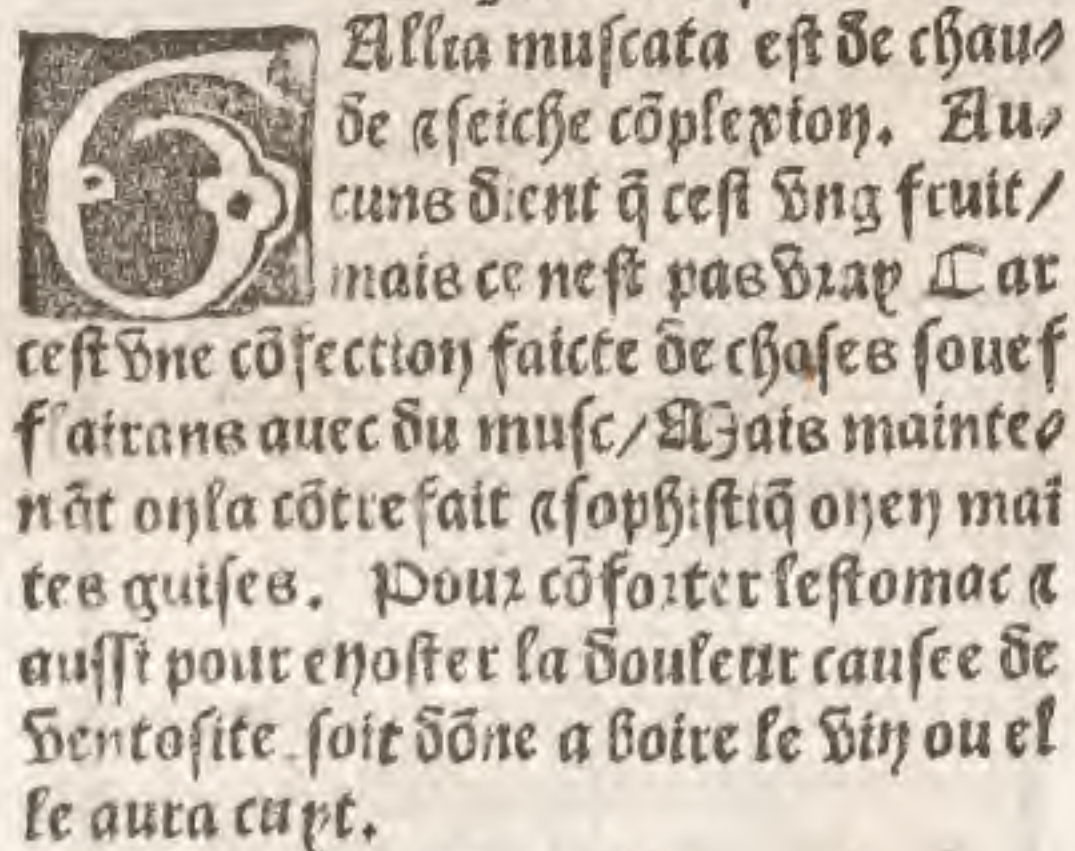 GAllia muſcata eſt de chau⸗
de ⁊ ſeiche cõplexion. Au⸗
cuns dient q̃ ceſt vng fruit/
mais ce neſt pas vray Car
ceſt vne cõfection faicte de choſes ſouef
flairans auec du muſc/ Mais mainte⸗
nãt on la cõtrefait ⁊ ſophiſtiq̃ on en mai
tes guiſes. Pour cõforter leſtomac ⁊
auſſi pour en oſter la douleur cauſee de
ventoſite ſoit dõne a boire le vin ou el
le aura cuyt.